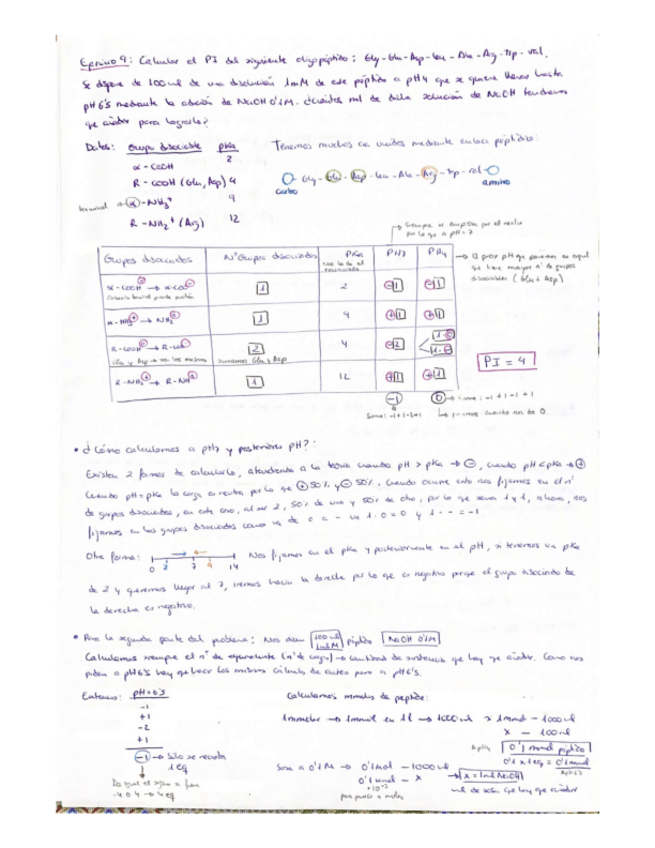 Ejercicio 9: Calcular el PI del siguiente oligopéptido: Gly-Glu-Asp-Leu-Ala-Arg-Trp-Val.
Se dispone de 100 ml de una disolución 1mM de este péptido a pH4 que se quiere llevar hasta
pH 6'5 mediante la adición de NaOH 0'1M. ¿Cuántos ml de dicha solución de NaOH tendremos
que añadir para lograrlo?
Datos: Grupo disociable pKa
α-COOH 2
R-COOH (Glu, Asp) 4
terminal α-NH3+ 9
R-NH2+ (Arg) 12
Tenemos muchos aa unidos mediante enlace peptídico:
Gly-Glu-Asp-Leu-Ala-Arg-Trp-Val
carbo
amino
Siempre se empieza por el neutro
por lo que a pH=7
Grupos disociados Nº Grupos disociados pKa pH7 pH4
α-COOH → α-COO- 1 2 -1 -1
α-NH3+ → NH2 1 9 +1 +1
R-COOH → R-COO- 2 4 -2 1·0 1·-
Glu y Asp Glu + Asp
R-NH2+ → R-NH 1 12 +1 +1
-1 0 suma: -1+1-1+1
Suma: -1+1-2+1
cuando nos da 0
El prox pH que ponemos es aquel
que tiene mayor nº de grupos
disociables (Glu + Asp)
PI = 4
• ¿Cómo calculamos a pH7 y posteriores pH?:
Existen 2 formas de calcularlo, atendiendo a la teoría cuando pH > pKa → -, cuando pH < pKa → +
Cuando pH = pKa la carga es neutra, por lo que + 50% y - 50%. Cuando ocurre esto nos fijamos en el nº
de grupos disociados, en este caso, al ser 2, 50% de uno y 50% de otro, por lo que sería 1 y 1, ahora, nos
fijamos en los grupos disociados como va de 0 a - un 1·0 = 0 y 1·- = -1.
Otra forma: 0 2 7 9 14 Nos fijamos en el pKa y posteriormente en el pH, si tenemos un pKa
de 2 y queremos llegar al 7, iremos hacia la derecha por lo que es negativo porque el grupo disociado de
la derecha es negativo.
• Para la segunda parte del problema: Nos dan 100 ml 1mM péptido NaOH 0'1M
Calculamos siempre el nº de equivalente (nº de cargas) → cantidad de sustancia que hay que añadir. Como nos
piden a pH 6'5 hay que hacer los mismos cálculos de antes para a pH 6'5.
Entonces: pH = 6'5
-1
+1
-2
+1
-1 → Sólo se necesita
1 eq
Calculamos mmoles de péptido:
1 mmol en 1l → 1000 ml
1 mmol - 1000 ml
x - 100 ml
0'1 mmol péptido
0'1 x 1 eq = 0'1 mmol
Sosa a 0'1M → 0'1 mol - 1000 ml
0'1 mmol - x → x = 1 ml NaOH
·10⁻³
para pasar a moles
ml de sosa que hay que añadir